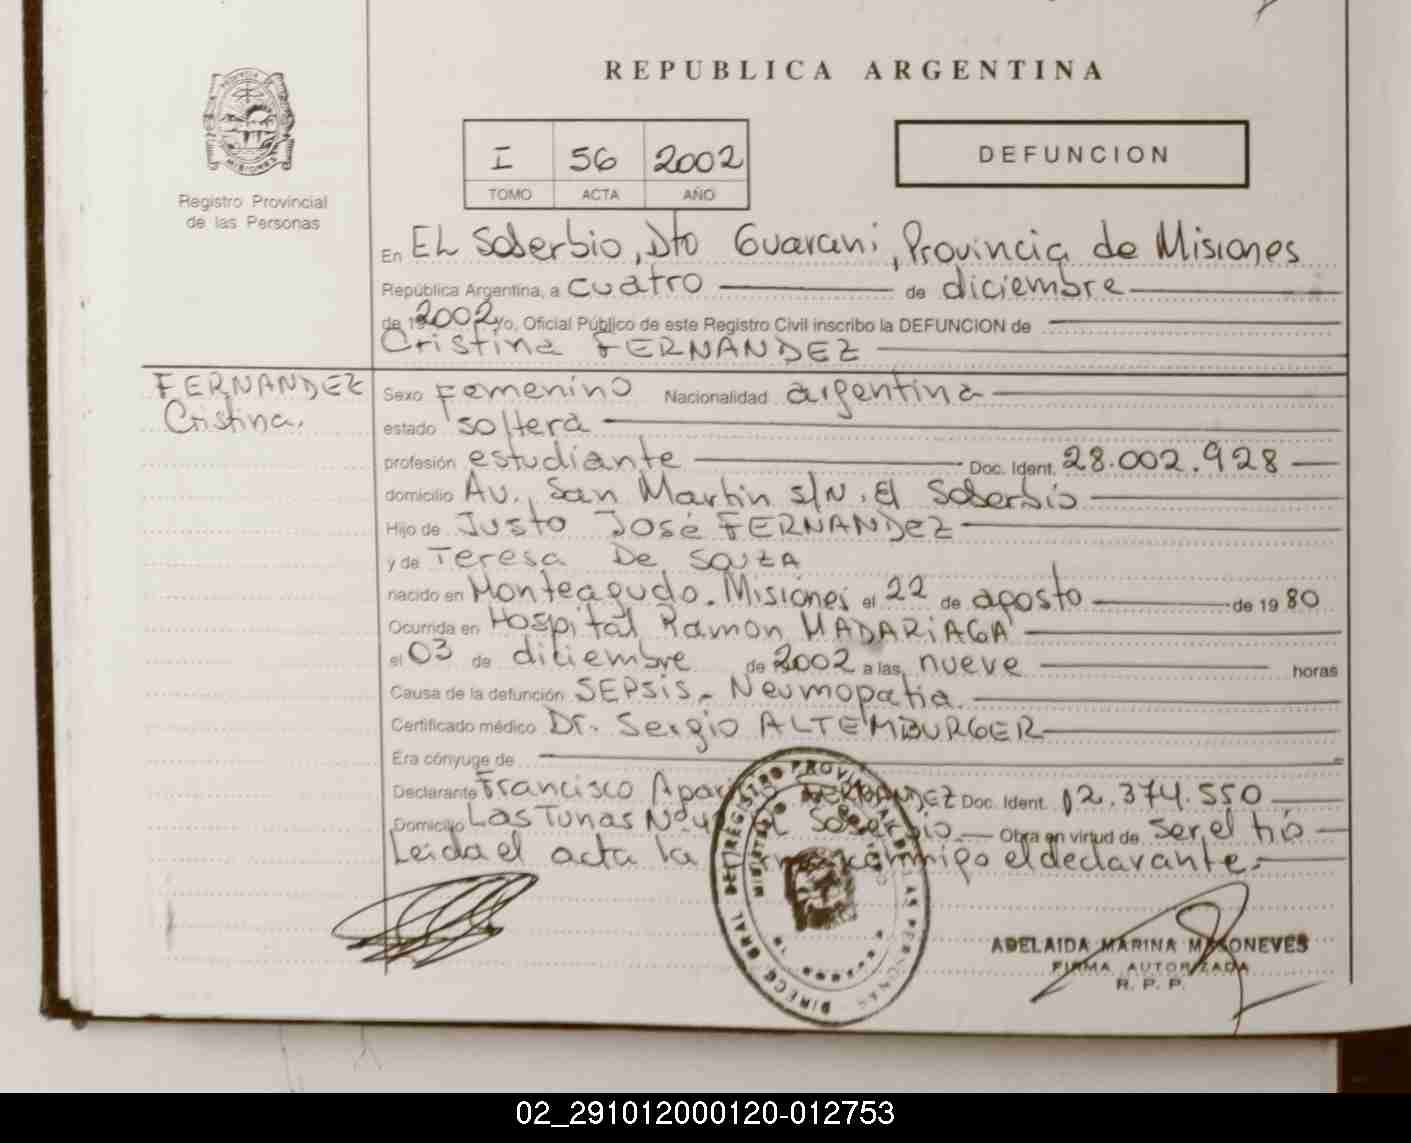 REPUBLICA ARGENTINA
MISIONES
Registro Provincial
de las Personas
I 56 2002
TOMO ACTA AÑO
DEFUNCION
En EL Soberbio, Dto Guarani, Provincia de Misiones
República Argentina, a cuatro de diciembre
de 19 2002 yo, Oficial Público de este Registro Civil inscribo la DEFUNCION de
Cristina FERNANDEZ
FERNANDEZ
Cristina.
Sexo femenino Nacionalidad argentina
estado soltera
profesión estudiante Doc. Ident. 28.002.928
domicilio Av. San Martin s/N. El Soberbio
Hijo de Justo José FERNANDEZ
y de Teresa De SouzA
nacido en Monteagudo. Misiones el 22 de agosto de 19 80
Ocurrida en Hospital Ramon MADARiAGA
el 03 de diciembre de 2002 a las nueve horas
Causa de la defunción SEPSIS - Neumopatia.
Certificado médico Dr. Sergio ALTEMBURGER
Era cónyuge de
Declarante Francisco FERNANDEZ Doc. Ident. 12.374.550
Domicilio Las Tunas El Soberbio Obra en virtud de ser el tio
Leida el acta la firma conmigo el declarante.
ADELAIDA MARINA
FIRMA AUTORIZADA
R. P. P.
02_291012000120-012753